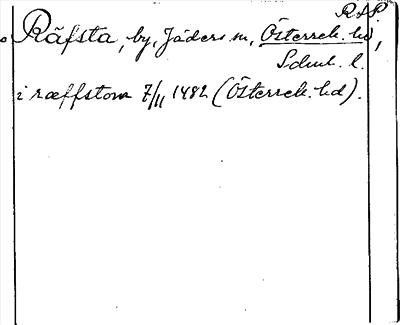 RAP
Räfsta, by, Jäders sn, Österrek. hd,
Söml. l.
i ræffstom 7/11 1482 (Österrek. hd).